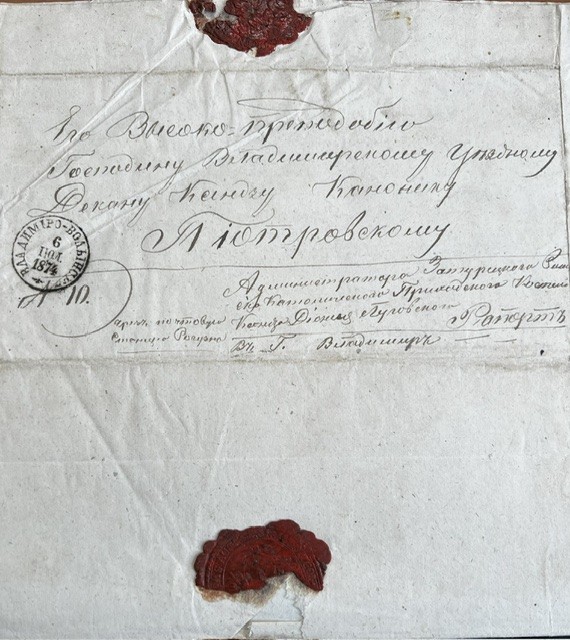 Его Высоко-преподобію
Господину Владимирскому Уѣздному
Декану Ксіндзу Канонику
Піотровскому
ВЛАДИМІРО-ВОЛЫНСКЪ
6
ІЮЛ.
1874
№ 10.
Администратора Затурецкого Рим
ско Католическаго Приходскаго Костела
чрезъ почтовую Ксендза
Станцію Рапортъ
Въ Г. Владимиръ